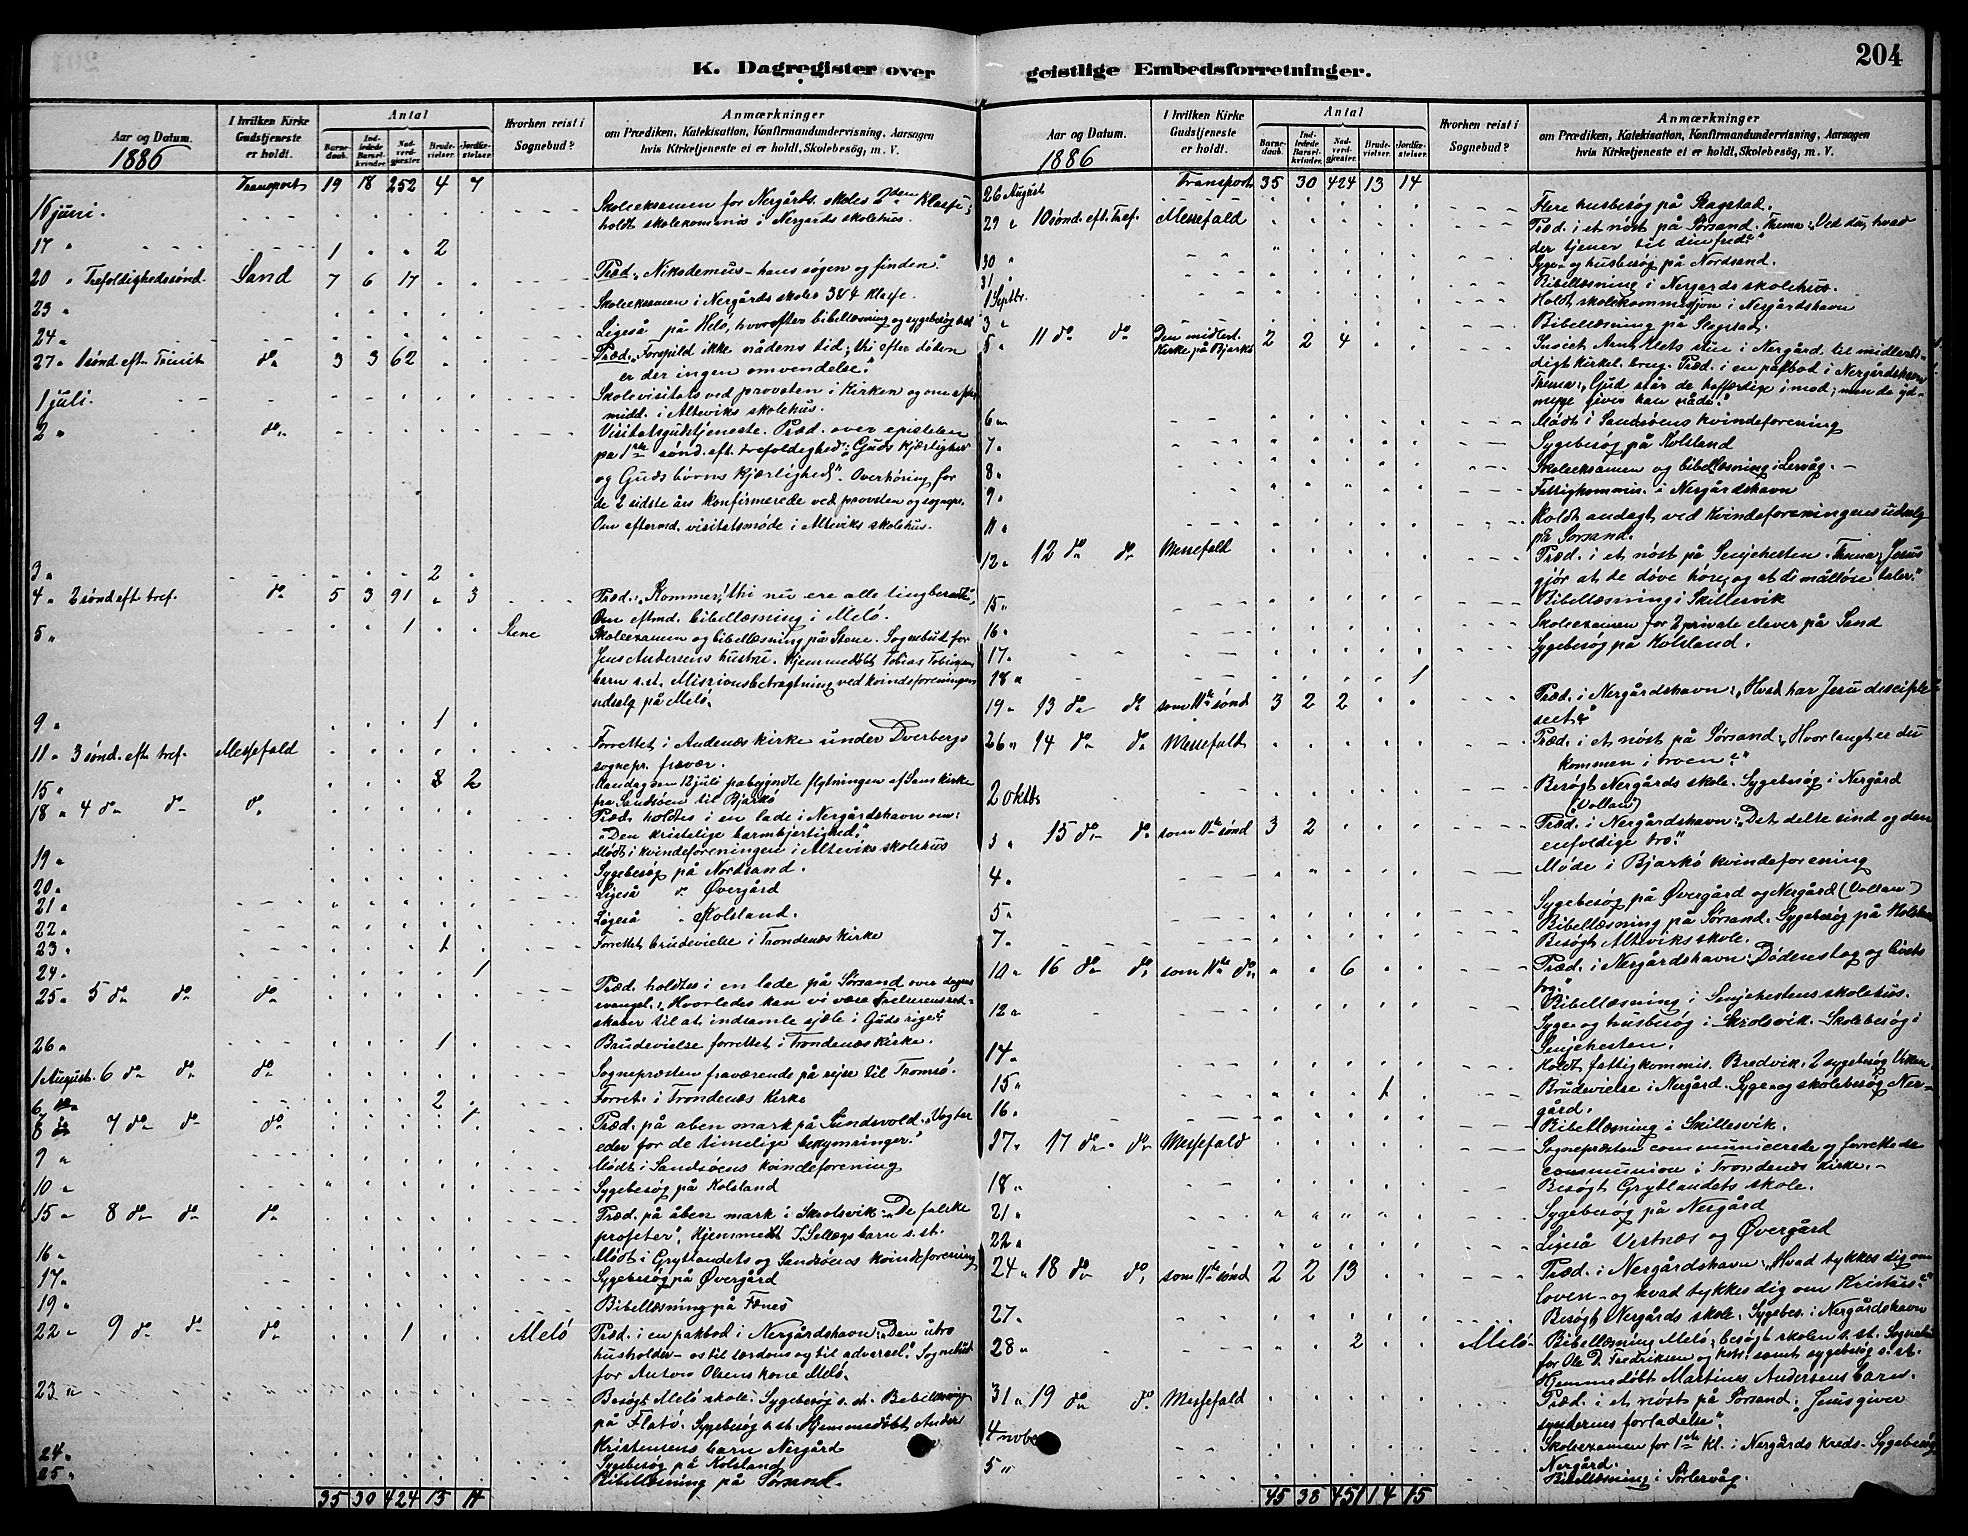 204
K. Dagregister over
geistlige Embedsforretninger.
Aar og Datum.
1886
I hvilken Kirke Gudstjeneste er holdt.
Antal
Barne-daab.
Ind-ledede Barsel-kvinder.
Nad-verd-gjester.
Brude-vielser.
Jordfæ-stelser.
Hvorhen reist i Sognebud?
Anmærkninger
om Prædiken, Katekisation, Konfirmandundervisning, Aarsagen
hvis Kirketjeneste ei er holdt, Skolebesög, m. V.
Transport 19 18 252 4 7
16 juni. Skoleeksamen for Nergårds skoles 2den Klasse;
holdt skolekommis i Nergårds skolehus.
17 " 1 2
20 " Trefoldighedssønd. Sand 7 6 17 Præd. "Nikodemus - hans søgen og finden".
23 " Skoleeksamen i Nergårds skoles 3&4 Klasse.
24 " Ligeså på Helø, hvorefter bibellæsning og sygebesøg
27 " 1 sønd eft Trinit do 3 3 62 Præd. "Forspild ikke nådens tid; thi efter døden
er der ingen omvendelse."
1 juli. Skolevisitats ved provsten i Kirken og om efter
midd. i Alteviks skolehus.
2 " do Visitatsgudstjeneste. Præd. over epistelen
på 1ste sønd. eft. trefoldighed: "Guds Kjærlighed
og Guds børns Kjærlighed". Overhøring for
de 2 sidste års konfirmerede ved provsten og sognepr.
Om eftermd. visitatsmøde i Alteviks skolehus.
3 " 2
4 " 2 sønd eft tref. do 5 3 91 3 Præd.: "Kommer! thi nu ere alle ting beredte",
Om eftmd. bibellæsning i Melø.
5 " 1 Stene Skoleexamen og bibellæsning på Stene. Sognebud for
Jens Andersens hustru. Hjemmedøbt Tobias
barn s.st. Missionsbetragtning ved kvindeforeningens
udsalg på Melø.
9 " 1
11 " 3 sønd. eft tref. Messefald Forrettet i Andenæs kirke under Dverbergs
sognepr. fravær.
15 " 8 2 Mandag den 12 juli påbegyndte flytningen af Sands kirke
fra Sandsøen til Bjarkø
18 " 4 do do do Præd. holdtes i en lade i Nergårdshavn om:
"Den kristelige barmhjertighed."
19 " Mødt i kvindeforeningen i Alteviks skolehus
20 " Sygebesøg på Nordsand.
21 " Ligeså do Øvergård
22 " Ligeså " Kolsland.
23 " 1 Forrettet brudevielse i Trondenæs Kirke
24 " 1
25 " 5 do do do Præd. holdtes i en lade på Sørsand over dagens
evangel.: "Hvorledes kan vi være Frelserens red-
skaber til at indsamle sjæle i Guds rige?"
26 " 1 Brudevielse forrettet i Trondenæs Kirke.
1 August. 6 do do do Sognepræsten fraværende på rejse til Tromsø.
6 " 2 Forret. i Trondenæs Kirke
8 " 7 do do do 1 Præd. på åben mark på Sundsvold. "Vogter
eder for de timelige bekymringer."
9 " Mødt i Sandsøens kvindeforening
10 " Sygebesøg på Kolsland
15 " 8 do do do Præd. på åben mark i Skrolsvik: "De falske
profeter". Hjemmedøbt J. barn s.st.
16 " Mødt i Grytlandets og Sandsøens kvindeforening
17 " Sygebesøg på Øvergård
19 " Bibellæsning på Fænes
22 " 9 do do do 1 Melø Præd. i en pakbod i Nergårdshavn: "Den utro
husholder - os til lærdom og til advarsel." Sognebud
for Anton Olsens kone Melø.
23 " Besøgt Melø skole. Sygebesøg s.st. Bibellæsning
på Flatø. Sygebesøg s.st. Hjemmedøbt Anders
Kristensens barn Nergård
24 " Sygebesøg på Kolsland
25 " Bibellæsning på Sørsand.
35 30 424 13 14
Aar og Datum.
1886
I hvilken Kirke Gudstjeneste er holdt.
Antal
Barne-daab.
Ind-ledede Barsel-kvinder.
Nad-verd-gjester.
Brude-vielser.
Jordfæ-stelser.
Hvorhen reist i Sognebud?
Anmærkninger
om Prædiken, Katekisation, Konfirmandundervisning, Aarsagen
hvis Kirketjeneste ei er holdt, Skolebesög, m. V.
Transport 35 30 424 13 14
26 August Flere husbesøg på Stagstad.
29 " 10 sønd. eft. Tref. Messefald Præd. i et nøst på Sørsand. Thema: "Ved du, hvad
der tjener til din fred?"
30 " Syge- og husbesøg på Nordsand.
31 " Bibellæsning i Nergårds skolehus.
1 Septbr. Holdt skolekommisjon i Nergårdshavn
3 " Bibellæsning på Stagstad.
5 " 11 do do Den midlert. Kirke på Bjarkø 2 2 4 stue i Nergård til midlerti-
digt kirkel. brug. Præd. i en pakbod i Nergårdshavn
Thema: "Gud står de hoffærdige imod; men de yd-
myge giver han nåde."
6 " Mødt i Sandsøens kvindeforening
7 " Sygebesøg på Kolsland
8 " Skoleeksamen og bibellæsning i Lervåg.
9 " Fattigkommis. i Nergårdshavn
11 " Holdt andagt ved kvindeforeningens udsalg
på Sørsand.
12 " 12 do do Messefald Præd. i et nøst på Senjehesten. Thema: "Jesus
gjør at de døve høre, og at de målløse taler."
15 " Bibellæsning i Skillesvik
16 " Skoleexamen for 2 private elever på Sand
17 " Sygebesøg på Kolsland.
18 " 1
19 " 13 do do som 11te sønd 3 2 2 Præd. i Nergårdshavn: "Hvad har Jesu disciple
seet?"
26 " 14 do do Messefald Præd. i et nøst på Sørsand: "Hvor langt er du
kommen i troen?"
2 oktb. Besøgt Nergårds skole. Sygebesøg i Nergård
(Vollan)
3 " 15 do do som 11te sønd 3 2 Præd. i Nergårdshavn: "Det delte sind og den
enfoldige tro."
4 " Møde i Bjarkø kvindeforening
5 " Sygebesøg på Øvergård og Nergård (Vollan)
Bibellæsning på Sørsand. Sygebesøg på Kolsland
7 " Besøgt Alteviks skole.
10 " 16 do do som 11te do 6 Præd. i Nergårdshavn: "Dødens tog og livets
tog."
12 " Bibellæsning i Senjehestens skolehus.
Syge- og husbesøg i Skrolsvik. Skolebesøg i
Senjehesten.
14 " Holdt fattigkommis. Bredvik. 2 sygebesøg
15 " 1 Brudevielse i Nergård. Syge- og skolebesøg Ner-
gård.
16 " Bibellæsning i Skillesvik.
17 " 17 do do Messefald Sognepræsten communicerede og forrettede
communion i Trondenæs Kirke.
18 " Besøgt Grytlandets skole.
21 " Sygebesøg på Nergård
22 " Ligeså Vestnæs og Øvergård
24 " 18 do do som 11te sønd 2 2 13 Præd. i Nergårdshavn: "Hvad tykkes dig om
loven - og hvad tykkes dig om Kristus?"
27 " Besøgt Nergårds skole. Sygebes. i Nergårdshavn
28 " 2 Melø Bibellæsning Melø; besøgt skolen s.st. Sognebud
for Ole D. Fredriksen og samt sygebesøg s.st.
Hjemmedøbt Martines Andersens barn.
31 " 19 do do Messefald Præd. i et nøst på Sørsand: "Jesus giver
syndernes forladelse".
4 novbr Skoleexamen for 1ste kl. i Nergårds kreds. Sygebesøg
Nergård.
5 " Bibellæsning i Sørlervåg.
45 38 451 14 15